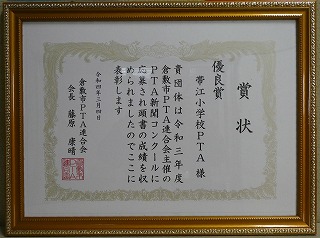 賞状
優良賞
帯江小学校PTA 様
貴団体は令和三年度
倉敷市PTA連合会主催の
PTA新聞コンクールに
応募され頭書の成績を収
められましたのでここに
表彰します
令和四年三月四日
倉敷市PTA連合会
会長 藤原 康晴